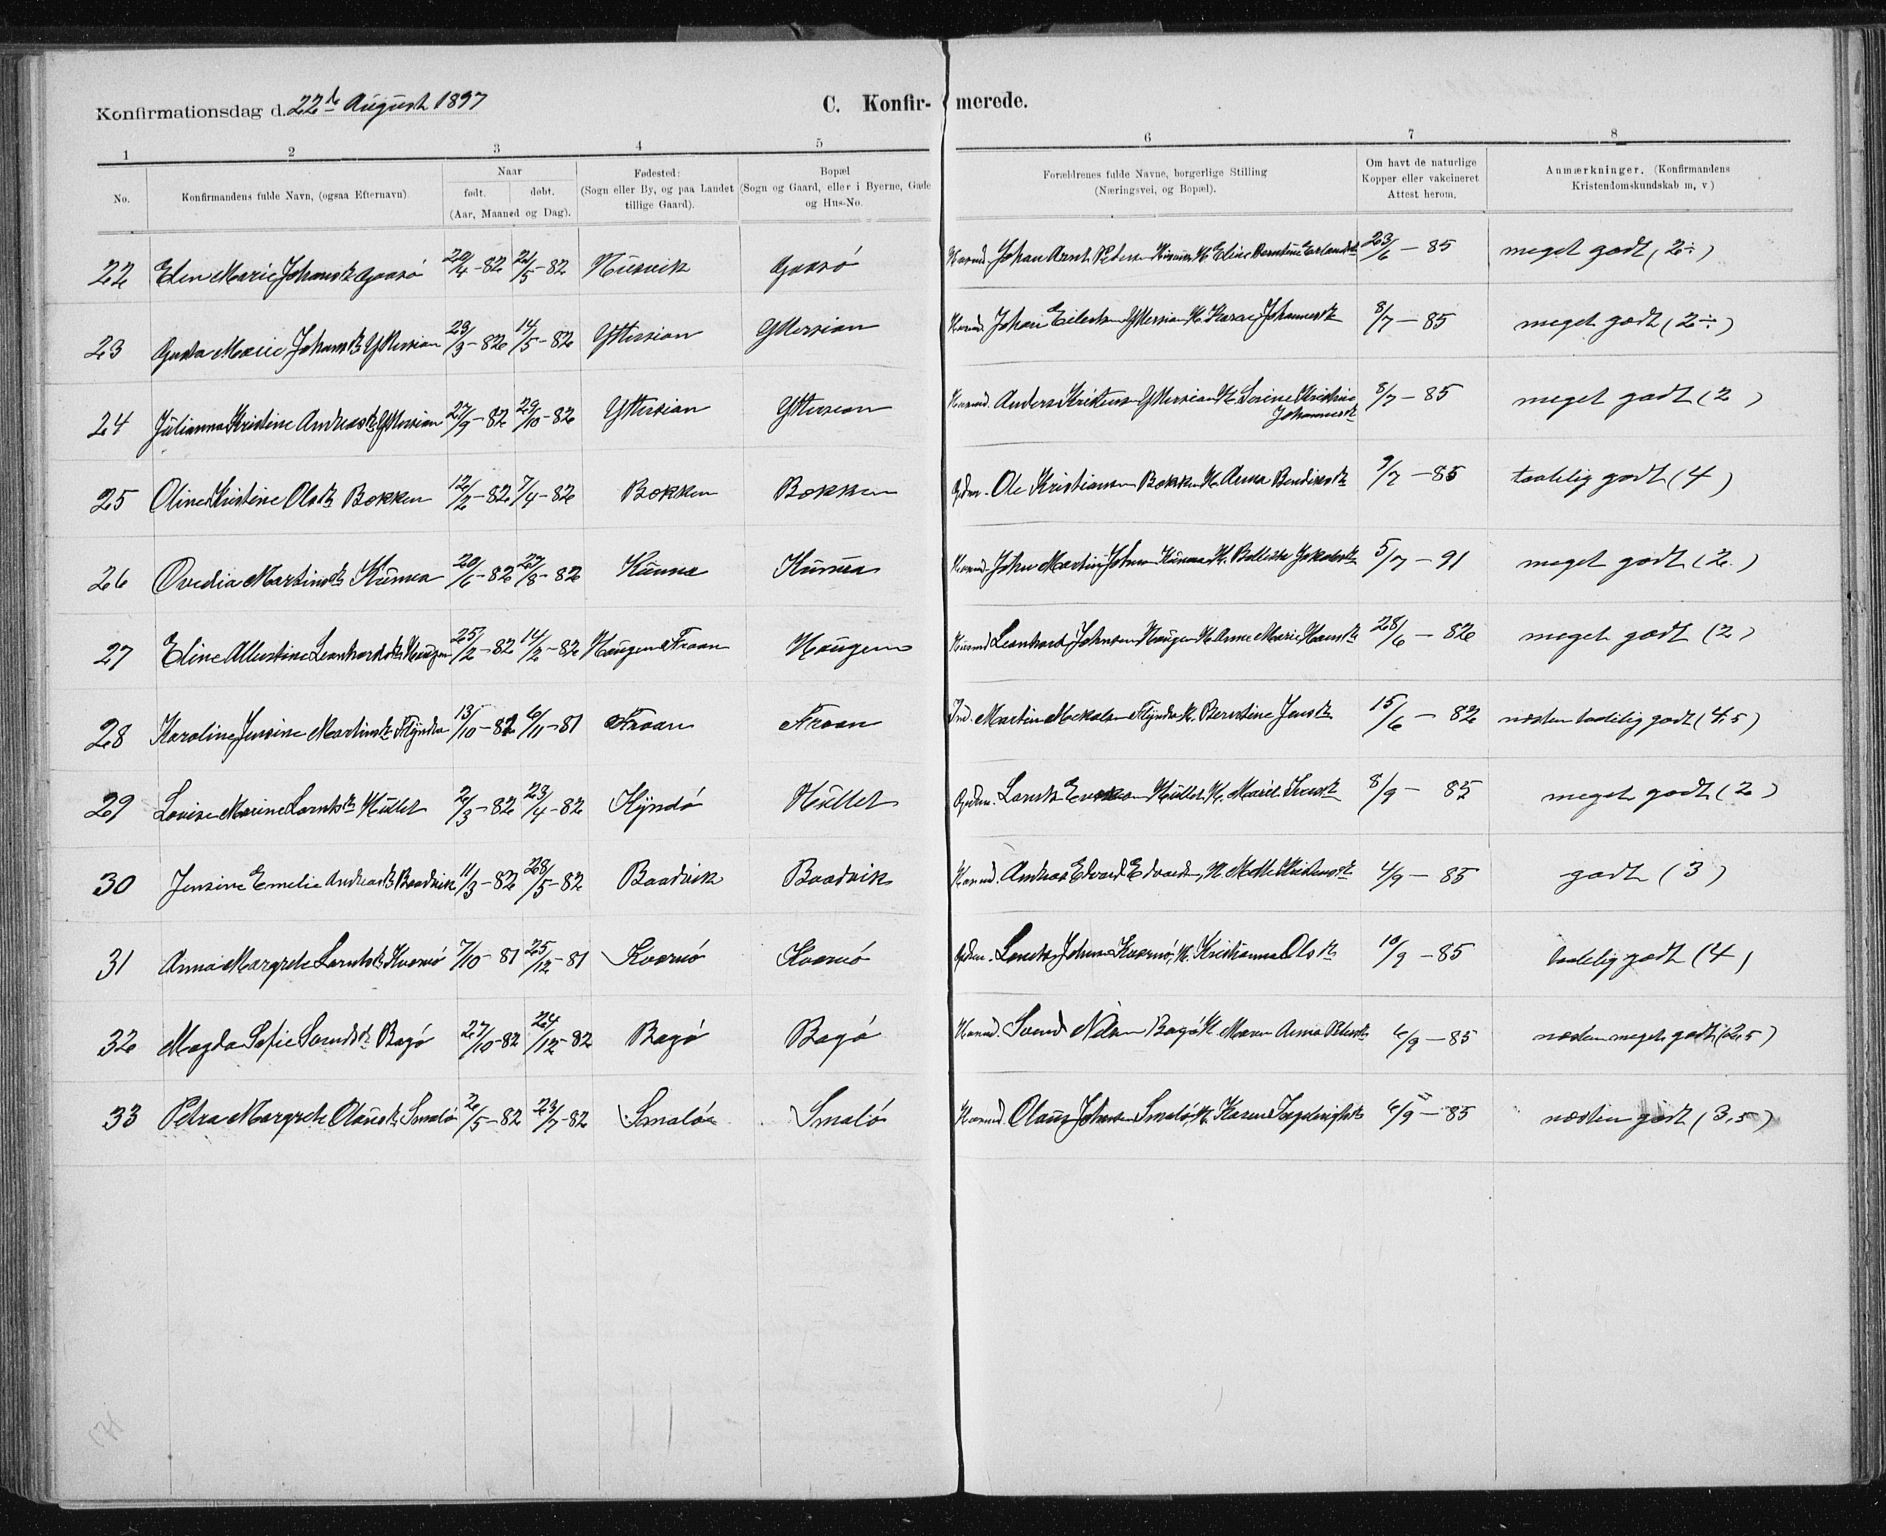 Konfirmationsdag d. 22de August 1897
C. Konfir- merede.
1 2 3 4 5 6 7 8
No. Konfirmandens fulde Navn, (ogsaa Efternavn). Naar født. døbt. (Aar, Maaned og Dag). Fødested: (Sogn eller By, og paa Landet tillige Gaard). Bopæl (Sogn og Gaard, eller i Byerne, Gade og Hus-No. Forældrenes fulde Navne, borgerlige Stilling (Næringsvei, og Bopæl). Om havt de naturlige Kopper eller vakcineret Attest herom. Anmærkninger. (Konfirmandens Kristendomskundskab m, v)
22 Elen Marie Johansdt Gaasø 20/4-82 21/5-82 Gaasø Johan Arnt Pedersen 23/6-85 meget godt (2÷)
23 Marie Johansdt Yttersian 23/3-82 14/5-82 Yttersian Yttersian Johan Eilertsen Yttersian H. Karen Johannesdt 8/7-85 meget godt (2÷)
24 Julianna Kristine Andreasdt Yttersian 27/9-82 29/10-82 Yttersian Yttersian Anders Kristensen Yttersian H. Serine Kristine Johannesdt 8/7-85 meget godt (2)
25 Oline Kristine Olsdt Bekken 12/2-82 7/4-82 Bekken Bekken Ole Kristiansen Bekken H. Anna 9/7-85 taalelig godt (4)
26 Ovedia Martinsdt Kunna 20/6-82 27/8-82 Kunna Kunna John Martin Johnsen Kunna H. Jakobsdt 5/7-91 meget godt (2.)
27 Eline Albertine Leonhardsdt Haugen 25/2-82 14/2-82 Haugen Froan Haugen Leonhard Johnsen Haugen H. Anne Marie Hansdt 28/6-82 meget godt (2)
28 Karoline Jensine Martinsdt Flyndra 13/10-81 6/11-81 Froan Froan Ind. Martin Mekalsen Flyndra H. Berntine Jensdt 15/6-82 næsten taalelig godt (4.5)
29 Lovise Marine Lorntsdt Hullet 2/3-82 23/4-82 Kyndø Hullet Lornts Hullet H. Marit 8/9-85 meget godt (2)
30 Jensine Emelie Andreasdt Baadvik 11/3-82 28/5-82 Baadvik Baadvik Andreas Edvard Edvardsen, H. Mette 4/9-85 godt (3)
31 Anna Margrete Lorntsdt Kvernø 7/10-81 25/12-81 Kvernø Kvernø Lornts Johnsen Kvernø, H. Kristianna Olsdt 10/9-85 taalelig godt (4)
32 Magda Sofie Svendsdt Bagø 27/10-82 24/12-82 Bagø Bagø Svend Bagø H. Maren Anna 6/9-85 næsten meget godt (2,5)
33 Petra Margrete Olausdt Smalø 2/5-82 23/7-82 Smalø Smalø Olaus Johansen Smalø, H. Karen 6/9-85 næsten godt (3,5)